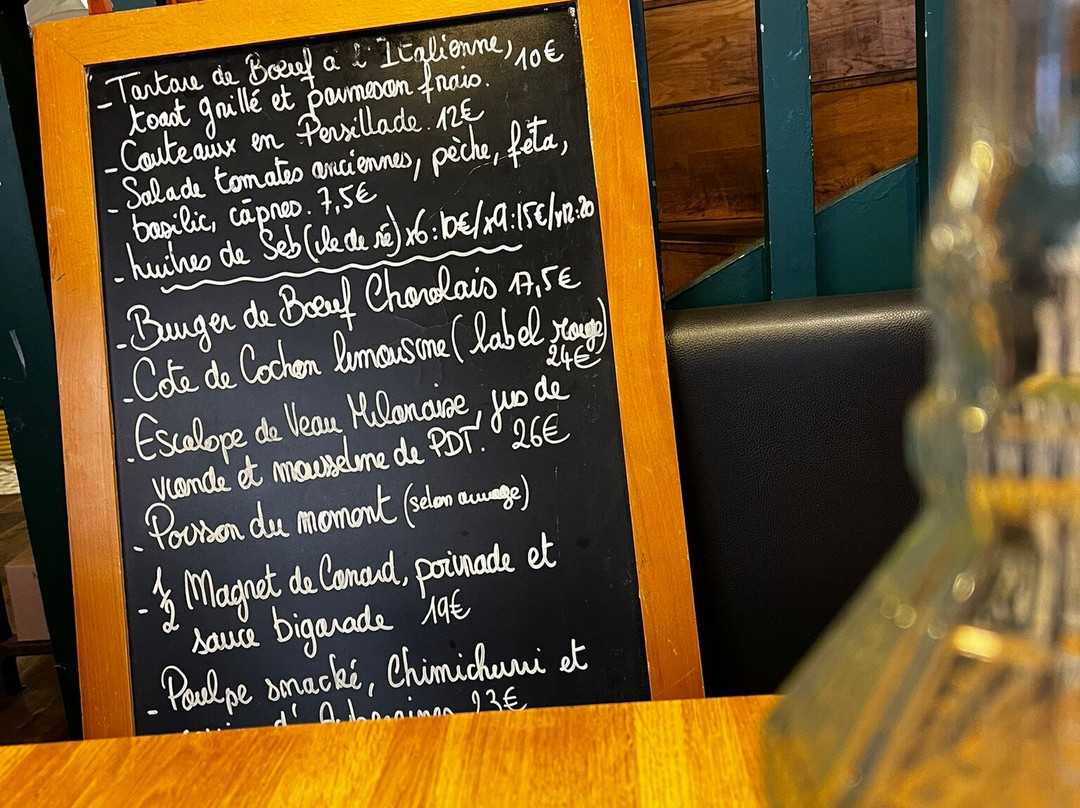 - Tartare de Bœuf à l'Italienne, 10€
toast grillé et parmesan frais.
- Couteaux en Persillade. 12€
- Salade tomates anciennes, pèche, fêta,
basilic, câpres. 7,5€
- huîtres de Seb (ile de ré) x6:10€/x9:15€/x12:20
- Burger de Bœuf Charolais 17,5€
- Cote de Cochon limousine (label rouge)
24€
- Escalope de Veau Milanaise, jus de
viande et mousseline de PDT. 26€
- Poisson du moment (selon arrivage)
- 1/2 Magret de Canard, poivrade et
sauce bigarade 19€
- Poulpe snacké, Chimichurri et
d'Aubergines 23€